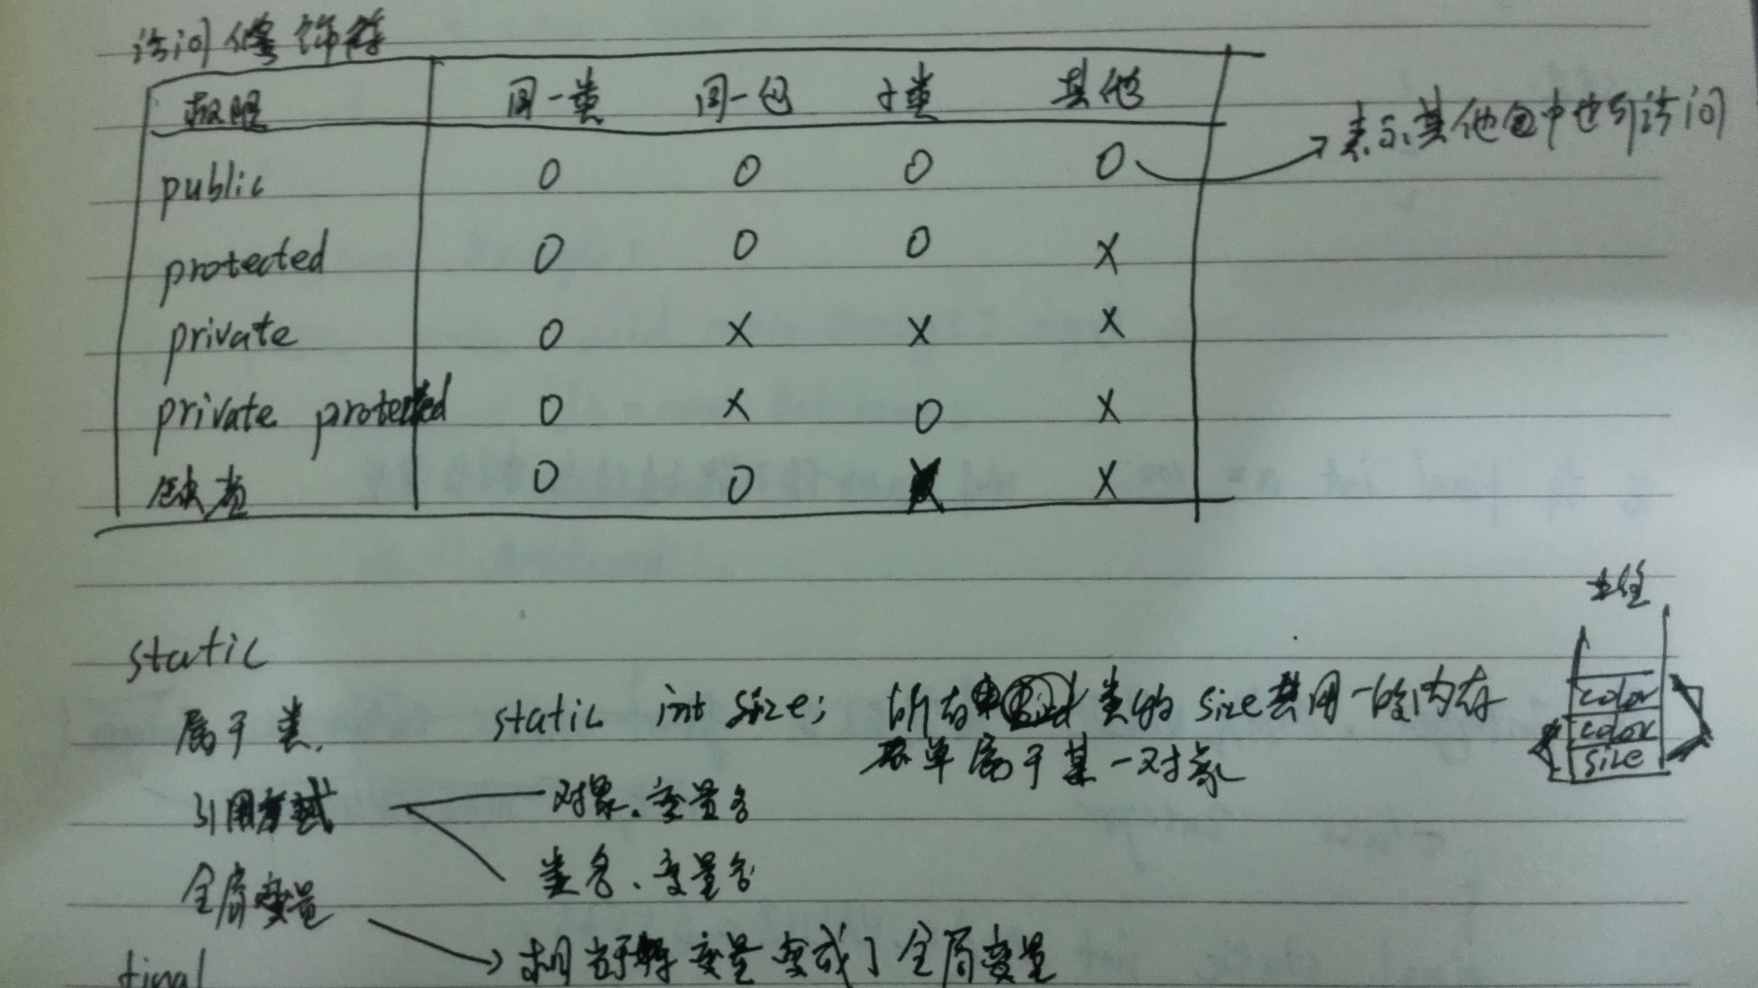 访问修饰符
权限 同一类 同一包 子类 其他
public O O O O → 表示其他包中也可访问
protected O O O X
private O X X X
private protected O X O X
缺省 O O X X
static
属于类. static int size; 所有 类的 size共用一段内存
不单属于某一对象
color
color
size
引用方式 对象.变量名
类名.变量名
全局变量
→ 相当于 变量变成了全局变量
final